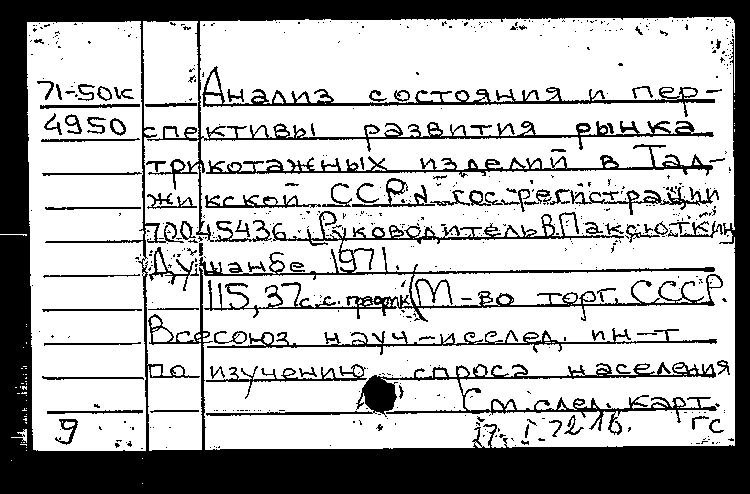 71-50к Анализ состояния и пер-
4950 спективы развития рынка
трикотажных изделий в Тад-
жикской ССР. № гос. регистрации
70045436. Руководитель В. Паксюткин
Душанбе, 1971.
115, 37 с. с. график (М-во торг. СССР.
Всесоюз. науч.-исслед. ин-т
по изучению спроса населения
См. след. карт.
9 27. I. 72 ГС